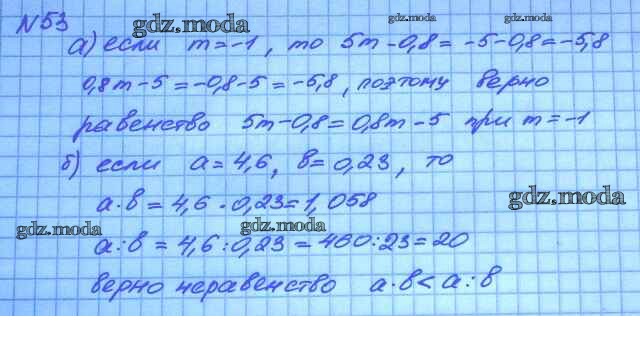 №53
gdz.moda
gdz.moda
gdz.moda
а) если m=-1, то 5m-0,8=-5-0,8=-5,8
0,8m-5=-0,8-5=-5,8, поэтому верно
равенство 5m-0,8=0,8m-5 при m=-1
б) если a=4,6, в=0,23, то
a·в=4,6·0,23=1,058
gdz.moda
gdz.moda
gdz.moda
a:в=4,6:0,23=460:23=20
верно неравенство a·в<a:в